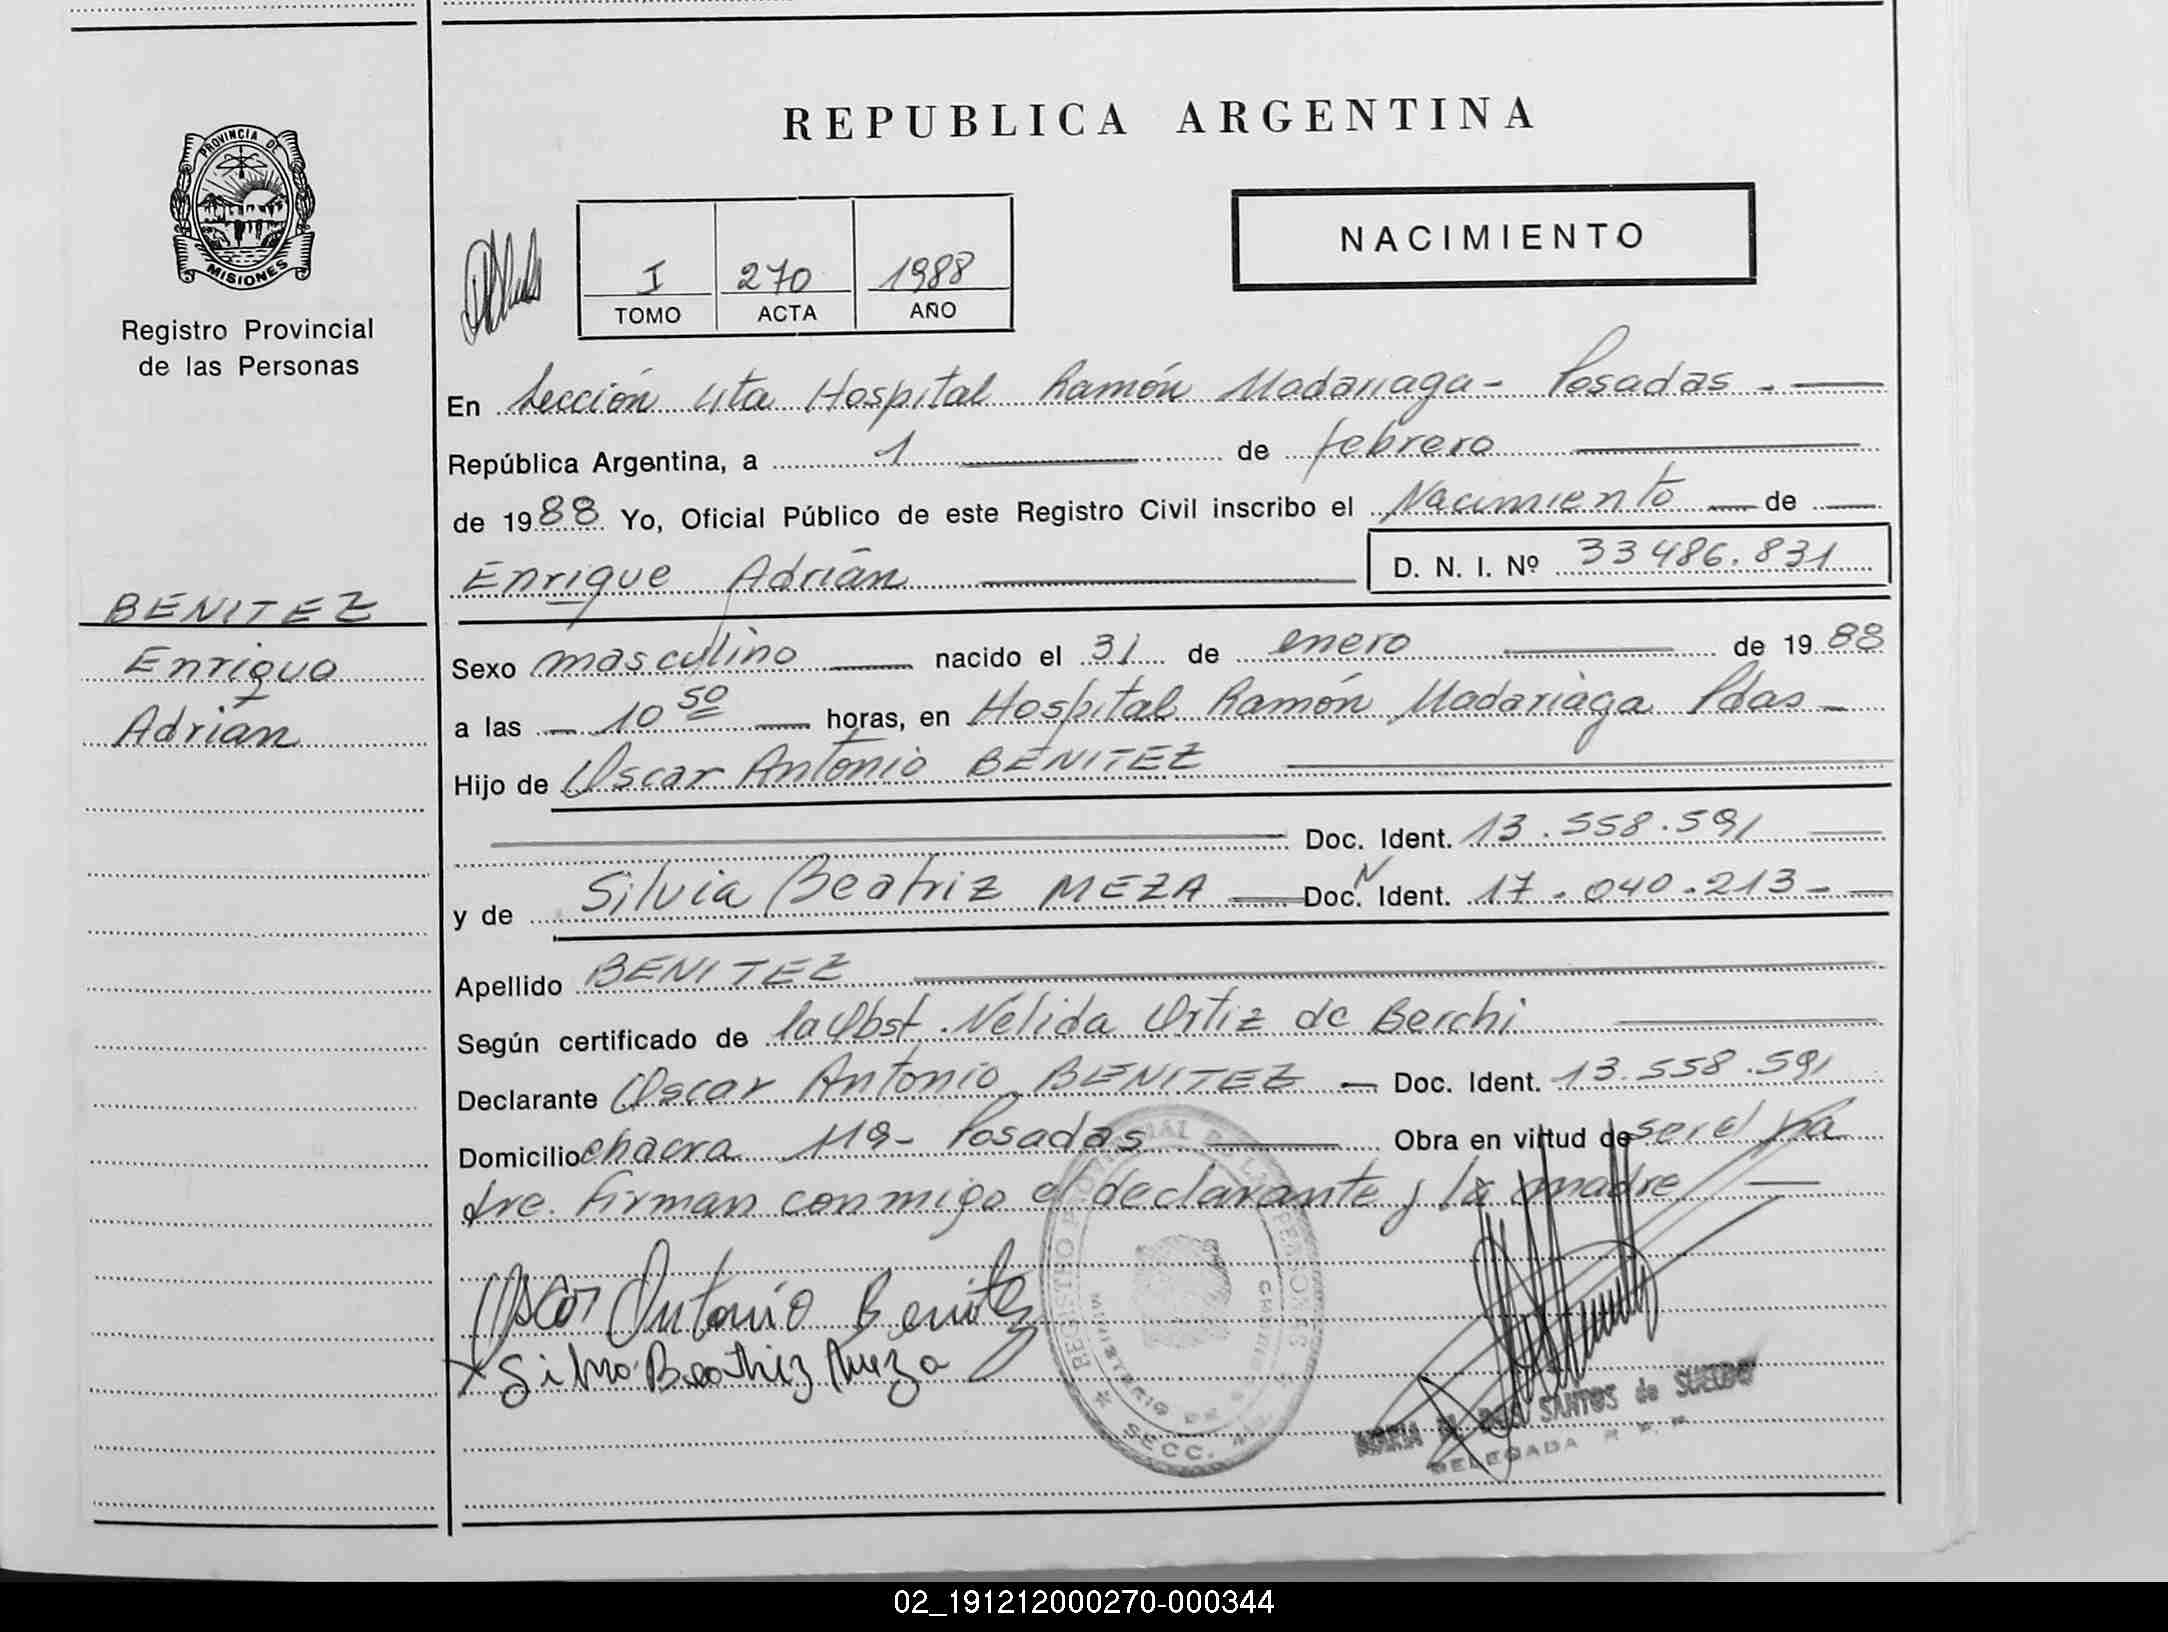 REPUBLICA ARGENTINA
PROVINCIA DE
MISIONES
Registro Provincial
de las Personas
NACIMIENTO
I 270 1988
TOMO ACTA AÑO
En Sección 4ta Hospital Ramón Madariaga - Posadas -
República Argentina, a 1 de febrero
de 1988 Yo, Oficial Público de este Registro Civil inscribo el Nacimiento de
Enrique Adrián D. N. I. Nº 33486.831
BENITEZ
Enrique
Adrián
Sexo masculino nacido el 31 de enero de 1988
a las - 10 50 horas, en Hospital Ramón Madariaga Pdas -
Hijo de Oscar Antonio BENITEZ
Doc. Ident. 13.558.591
y de Silvia Beatriz MEZA Doc. N Ident. 17.040.213-
Apellido BENITEZ
Según certificado de la Obst. Nélida Ortiz de Berchi
Declarante Oscar Antonio BENITEZ - Doc. Ident. 13.558.591
Domicilio chacra 119- Posadas Obra en virtud de ser el pa
dre. Firman conmigo el declarante y la madre
Oscar Antonio Benitez
x Silvia Beatriz Meza
REGISTRO PROVINCIAL DE LAS PERSONAS
MINISTERIO DE
SECC. 4
MARIA DOS SANTOS de SUELDO
DELEGADA R. P. P.
02_191212000270-000344